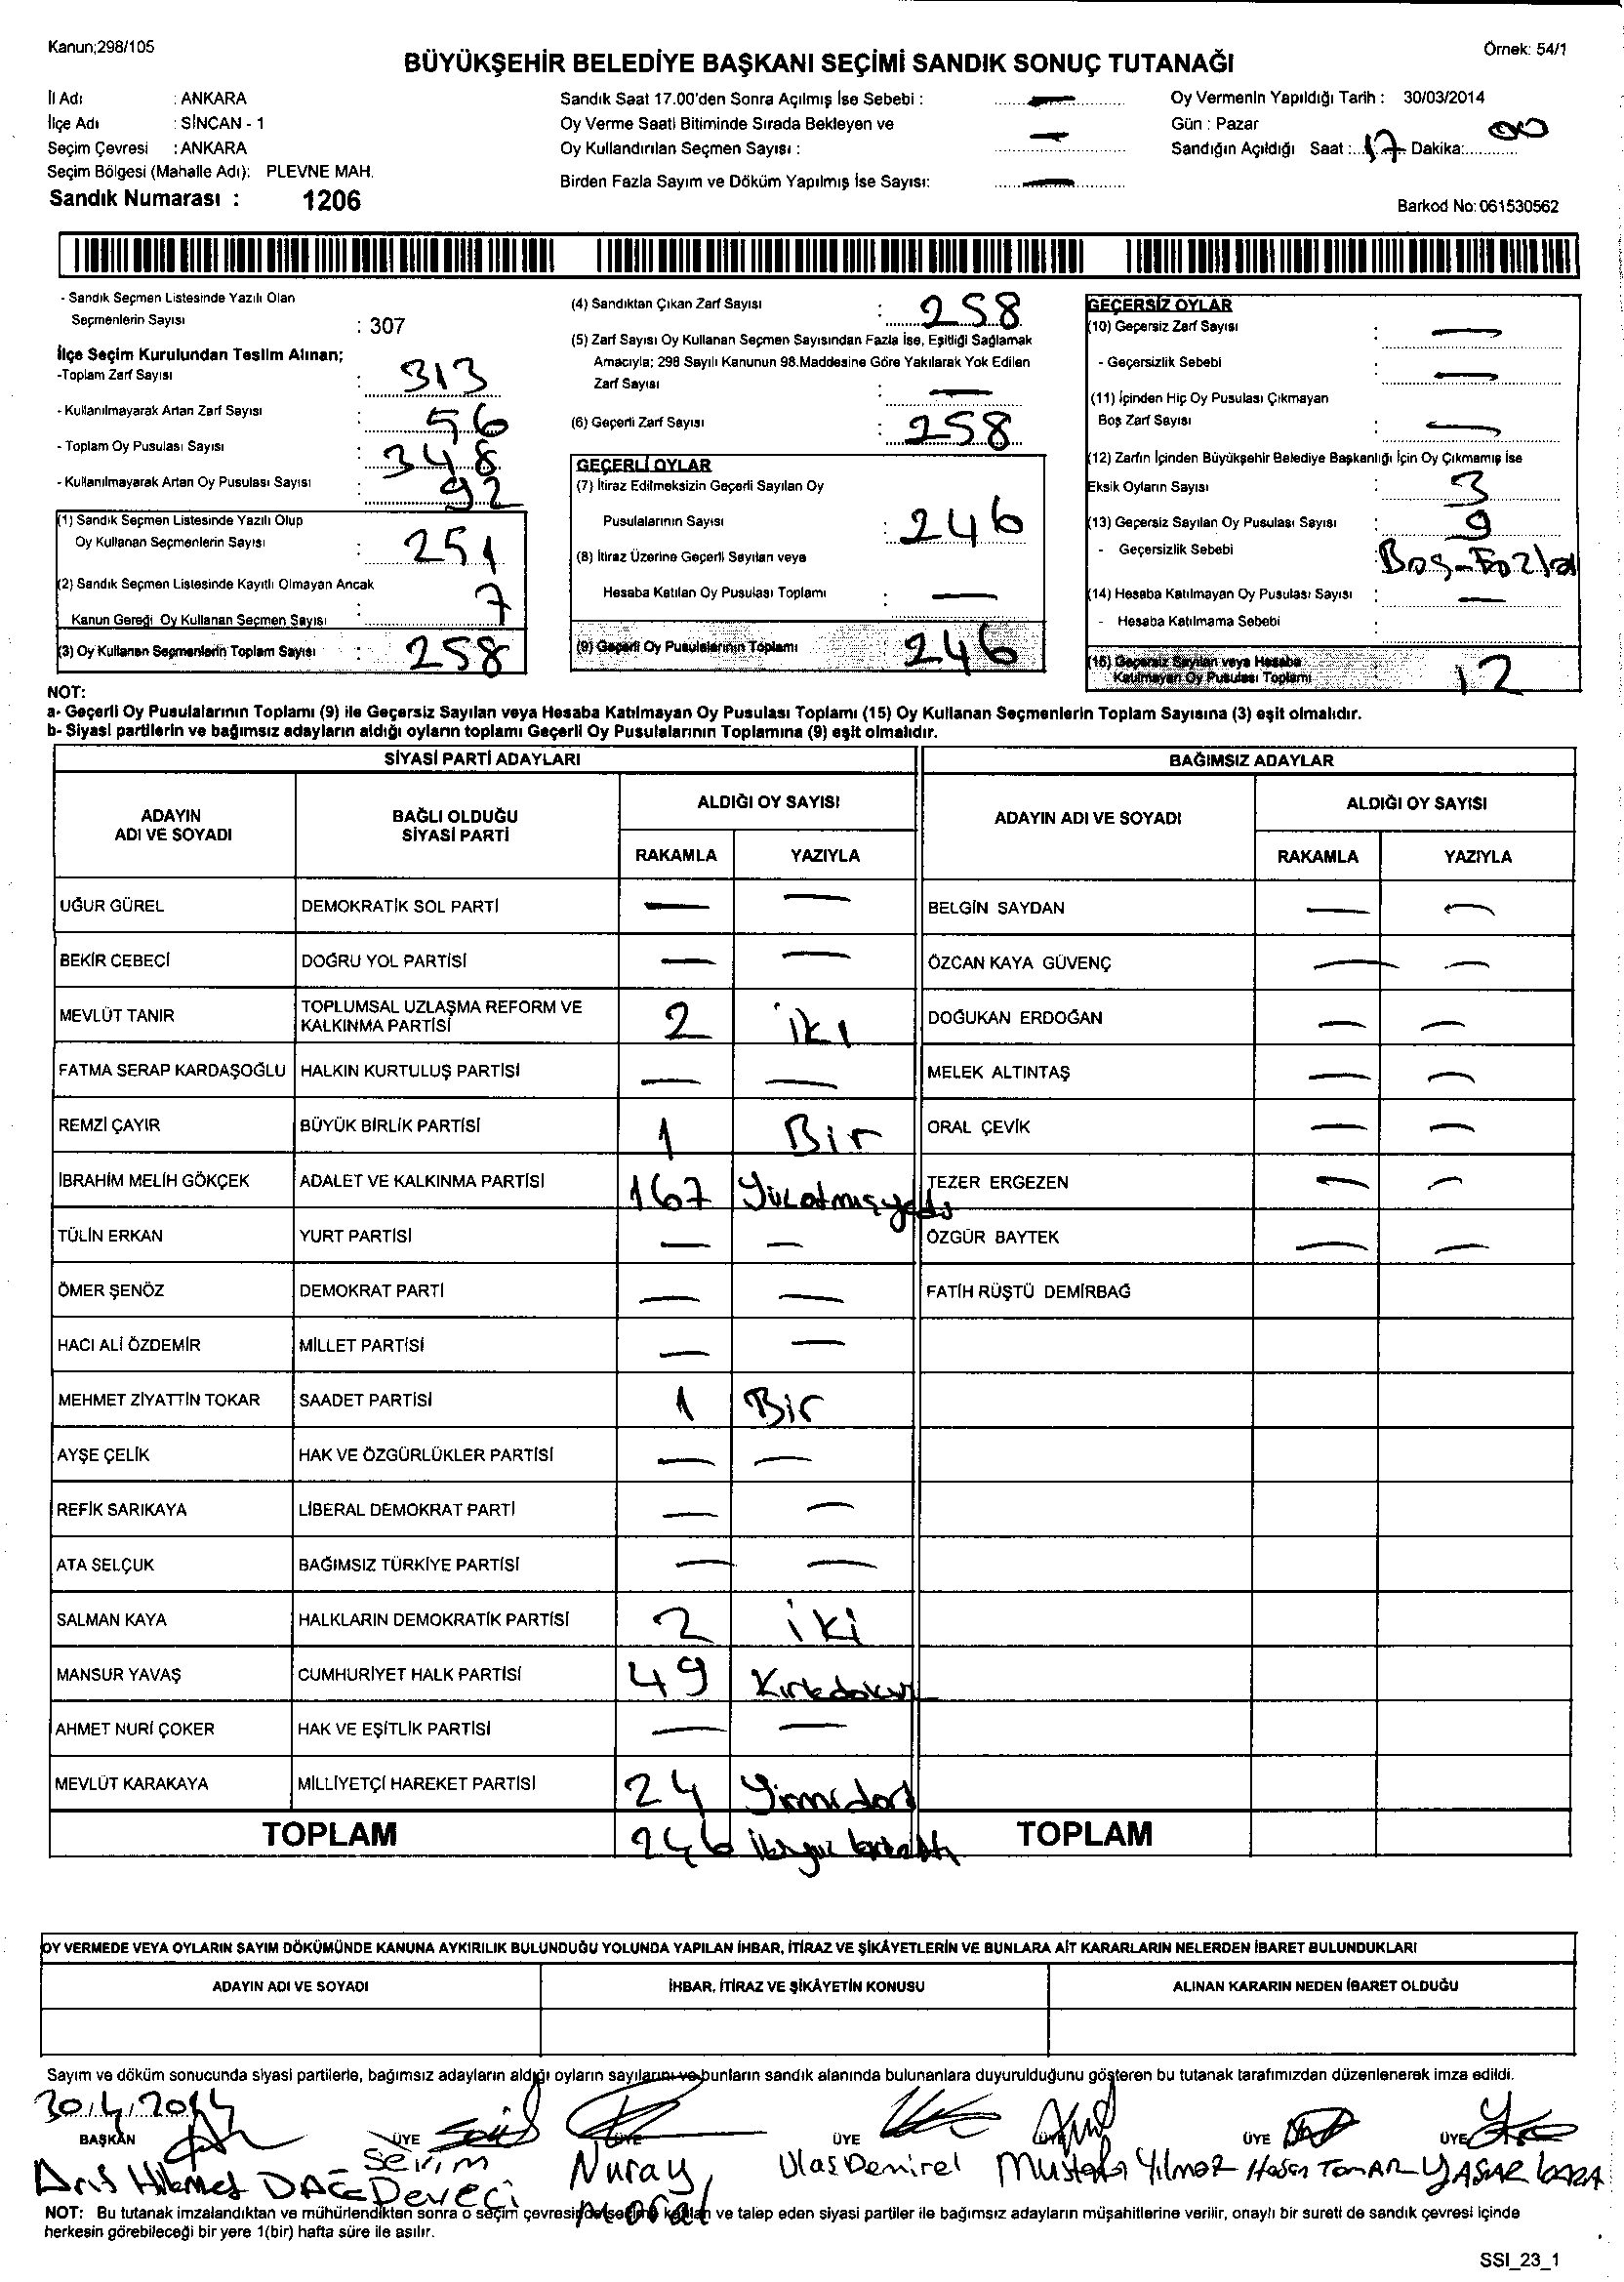 Kanun;298/105
Örnek: 54/1
BÜYÜKŞEHİR BELEDİYE BAŞKANI SEÇİMİ SANDIK SONUÇ TUTANAĞI
İl Adı : ANKARA
İlçe Adı : SİNCAN - 1
Seçim Çevresi : ANKARA
Seçim Bölgesi (Mahalle Adı): PLEVNE MAH.
Sandık Numarası : 1206
Sandık Saat 17.00'den Sonra Açılmış İse Sebebi : —
Oy Verme Saati Bitiminde Sırada Bekleyen ve
Oy Kullandırılan Seçmen Sayısı : —
Birden Fazla Sayım ve Döküm Yapılmış İse Sayısı: —
Oy Vermenin Yapıldığı Tarih : 30/03/2014
Gün : Pazar
Sandığın Açıldığı Saat : 17 Dakika: 00
Barkod No: 061530562
- Sandık Seçmen Listesinde Yazılı Olan
Seçmenlerin Sayısı : 307
İlçe Seçim Kurulundan Teslim Alınan;
-Toplam Zarf Sayısı : 313
- Kullanılmayarak Artan Zarf Sayısı : 56
- Toplam Oy Pusulası Sayısı : 348
- Kullanılmayarak Artan Oy Pusulası Sayısı : 92
(1) Sandık Seçmen Listesinde Yazılı Olup
Oy Kullanan Seçmenlerin Sayısı : 251
(2) Sandık Seçmen Listesinde Kayıtlı Olmayan Ancak
Kanun Gereği Oy Kullanan Seçmen Sayısı : 7
(3) Oy Kullanan Seçmenlerin Toplam Sayısı : 258
(4) Sandıktan Çıkan Zarf Sayısı : 258
(5) Zarf Sayısı Oy Kullanan Seçmen Sayısından Fazla İse, Eşitliği Sağlamak
Amacıyla; 298 Sayılı Kanunun 98.Maddesine Göre Yakılarak Yok Edilen
Zarf Sayısı : —
(6) Geçerli Zarf Sayısı : 258
GEÇERLİ OYLAR
(7) İtiraz Edilmeksizin Geçerli Sayılan Oy
Pusulalarının Sayısı : 246
(8) İtiraz Üzerine Geçerli Sayılan veya
Hesaba Katılan Oy Pusulası Toplamı : —
(9) Geçerli Oy Pusulalarının Toplamı 246
GEÇERSİZ OYLAR
(10) Geçersiz Zarf Sayısı : —
- Geçersizlik Sebebi : —
(11) İçinden Hiç Oy Pusulası Çıkmayan
Boş Zarf Sayısı : —
(12) Zarfın İçinden Büyükşehir Belediye Başkanlığı İçin Oy Çıkmamış İse
Eksik Oyların Sayısı : 3
(13) Geçersiz Sayılan Oy Pusulası Sayısı : 9
- Geçersizlik Sebebi : Boş-Fazla
(14) Hesaba Katılmayan Oy Pusulası Sayısı : —
- Hesaba Katılmama Sebebi :
(15) Geçersiz Sayılan veya Hesaba
Katılmayan Oy Pusulası Toplamı 12
NOT:
a- Geçerli Oy Pusulalarının Toplamı (9) ile Geçersiz Sayılan veya Hesaba Katılmayan Oy Pusulası Toplamı (15) Oy Kullanan Seçmenlerin Toplam Sayısına (3) eşit olmalıdır.
b- Siyasi partilerin ve bağımsız adayların aldığı oyların toplamı Geçerli Oy Pusulalarının Toplamına (9) eşit olmalıdır.
SİYASİ PARTİ ADAYLARI
ADAYIN
ADI VE SOYADI
BAĞLI OLDUĞU
SİYASİ PARTİ
ALDIĞI OY SAYISI
RAKAMLA YAZIYLA
UĞUR GÜREL DEMOKRATİK SOL PARTİ — —
BEKİR CEBECİ DOĞRU YOL PARTİSİ — —
MEVLÜT TANIR TOPLUMSAL UZLAŞMA REFORM VE
KALKINMA PARTİSİ 2 iki
FATMA SERAP KARDAŞOĞLU HALKIN KURTULUŞ PARTİSİ — —
REMZİ ÇAYIR BÜYÜK BİRLİK PARTİSİ 1 Bir
İBRAHİM MELİH GÖKÇEK ADALET VE KALKINMA PARTİSİ 167 Yüzatmışyedi
TÜLİN ERKAN YURT PARTİSİ — —
ÖMER ŞENÖZ DEMOKRAT PARTİ — —
HACI ALİ ÖZDEMİR MİLLET PARTİSİ — —
MEHMET ZİYATTİN TOKAR SAADET PARTİSİ 1 Bir
AYŞE ÇELİK HAK VE ÖZGÜRLÜKLER PARTİSİ — —
REFİK SARIKAYA LİBERAL DEMOKRAT PARTİ — —
ATA SELÇUK BAĞIMSIZ TÜRKİYE PARTİSİ — —
SALMAN KAYA HALKLARIN DEMOKRATİK PARTİSİ 2 iki
MANSUR YAVAŞ CUMHURİYET HALK PARTİSİ 49 Kırkdokuz
AHMET NURİ ÇOKER HAK VE EŞİTLİK PARTİSİ — —
MEVLÜT KARAKAYA MİLLİYETÇİ HAREKET PARTİSİ 24 Yirmidört
TOPLAM 246 ikiyüz kırkaltı
BAĞIMSIZ ADAYLAR
ADAYIN ADI VE SOYADI
ALDIĞI OY SAYISI
RAKAMLA YAZIYLA
BELGİN SAYDAN — —
ÖZCAN KAYA GÜVENÇ — —
DOĞUKAN ERDOĞAN — —
MELEK ALTINTAŞ — —
ORAL ÇEVİK — —
TEZER ERGEZEN — —
ÖZGÜR BAYTEK — —
FATİH RÜŞTÜ DEMİRBAĞ
TOPLAM
OY VERMEDE VEYA OYLARIN SAYIM DÖKÜMÜNDE KANUNA AYKIRILIK BULUNDUĞU YOLUNDA YAPILAN İHBAR, İTİRAZ VE ŞİKÂYETLERİN VE BUNLARA AİT KARARLARIN NELERDEN İBARET BULUNDUKLARI
ADAYIN ADI VE SOYADI İHBAR, İTİRAZ VE ŞİKÂYETİN KONUSU ALINAN KARARIN NEDEN İBARET OLDUĞU
Sayım ve döküm sonucunda siyasi partilerle, bağımsız adayların aldığı oyların sayılarını ve bunların sandık alanında bulunanlara duyurulduğunu gösteren bu tutanak tarafımızdan düzenlenerek imza edildi.
30/4/2014
BAŞKAN ÜYE ÜYE ÜYE ÜYE ÜYE ÜYE
Hikmet DAĞ
Sevim Deveci
Nuray
Ulaş Demirel
Mustafa Yılmaz
Hasan TOMAR
YAŞAR KARA
NOT: Bu tutanak imzalandıktan ve mühürlendikten sonra o seçim çevresinde seçime katılan ve talep eden siyasi partiler ile bağımsız adayların müşahitlerine verilir, onaylı bir sureti de sandık çevresi içinde
herkesin görebileceği bir yere 1(bir) hafta süre ile asılır.
SSI_23_1